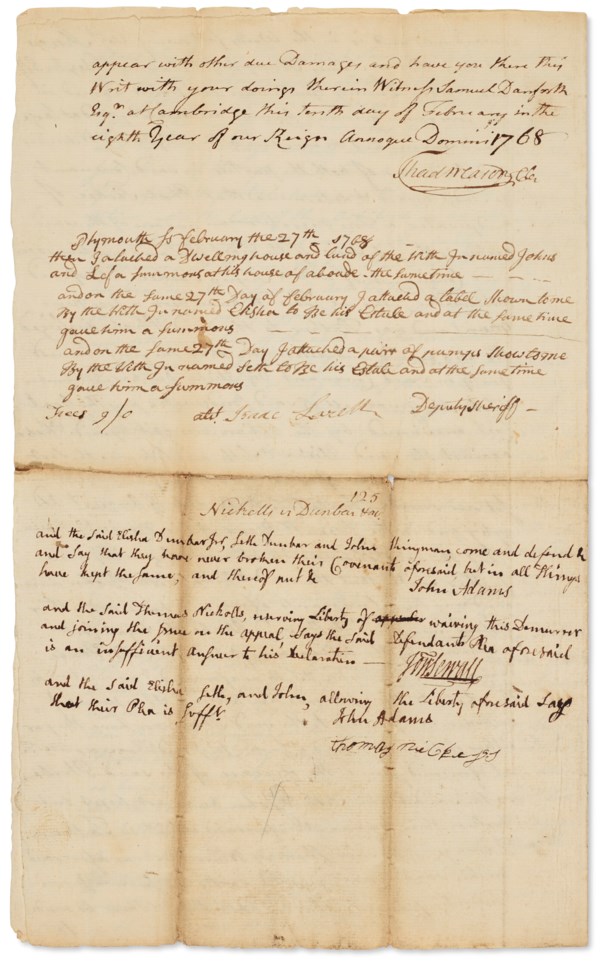 appear with other due Damages and have you there this
Writ with your doings therein Witness Samuel Danforth
Esqr. at Cambridge this tenth day of February in the
eighth Year of our Reign Annoque Domini 1768
Thad Mason Cler
Plymouth Ss February the 27th 1768
then I atached a Dwelling house and land of the
named Johns
and Lef a summons at his house of aboade the same time
and on the same 27th Day of February I atached a tabel Shown to me
By the
named Elisha to Be his Estate and at the same time
gave him a summons
and on the same 27th Day I atached a pair of pumps Show to me
By the
named Seth to Be his Estate and at the same time
gave him a summons
Fees 9/0
Isaac
Deputy Sheriff
125
Nicholls vs Dunbar &al.
and the said Elisha Dunbar Jr, Seth Dunbar and John
come and defend &c
and Say that they have never broken their Covenant aforesaid but in all Things
have kept the same, and thereof put &c
John Adams
and the said Thomas Nicholls, reserving Liberty of
waiving this Demurrer
and joining the Issue on the appeal, Says the Said Defendants Plea aforesaid
is an insufficient Answer to his Declaration
Jon Sewall
and the Said Elisha, Seth, and John, allowing the Liberty aforesaid Say
that their Plea is Sufft.
John Adams
thomas